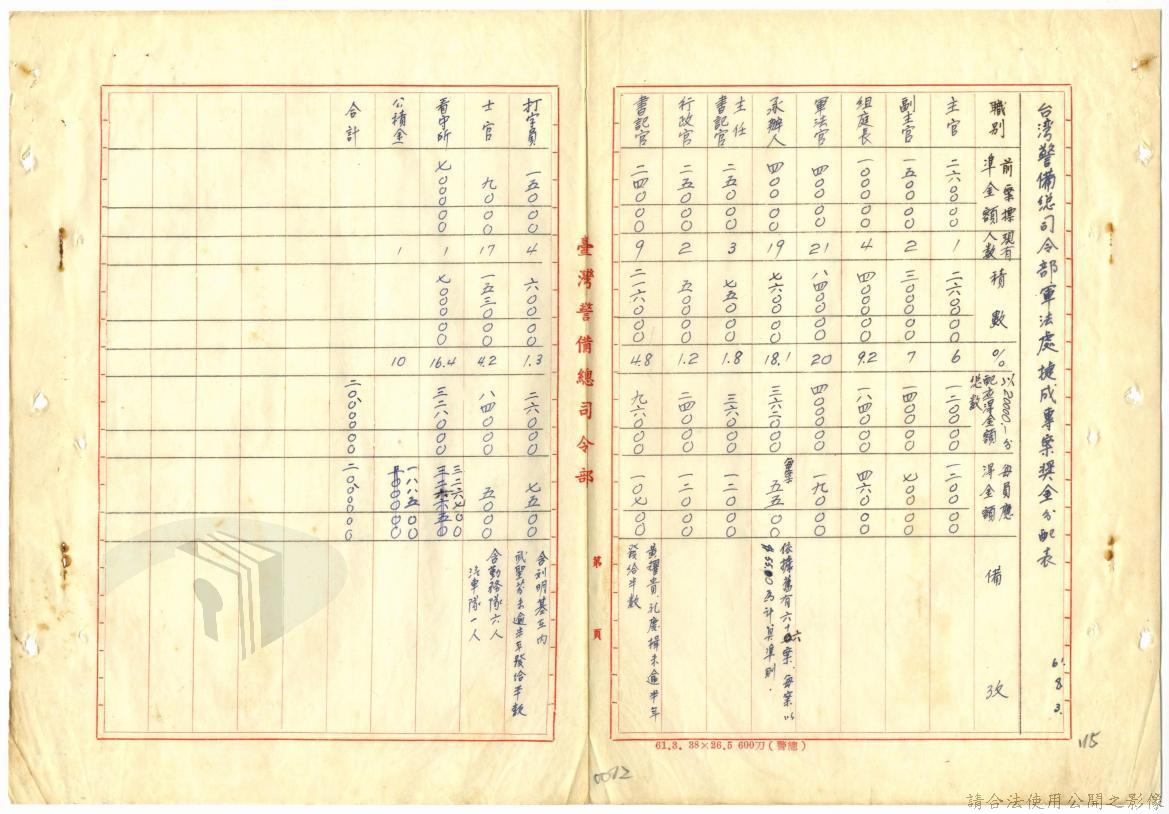 台湾警備總司令部軍法處捷成專案獎金分配表
61.8.3.
職別 前案標準金額 現有人數 積數 % 以20000.-分配應得金額總數 每員應得金額 備攷
主官 二六〇〇〇〇 1 二六〇〇〇〇 6 一二〇〇〇〇 一二〇〇〇〇
副主官 一五〇〇〇〇 2 三〇〇〇〇〇 7 一四〇〇〇〇 七〇〇〇〇
組庭長 一〇〇〇〇〇 4 四〇〇〇〇〇 9.2 一八四〇〇〇 四六〇〇〇
軍法官 四〇〇〇〇 21 八四〇〇〇〇 20 四〇〇〇〇〇 一九〇〇〇
承辦人 四〇〇〇〇 19 七六〇〇〇〇 18.1 三六二〇〇〇 每案 五五〇〇 依據舊有六十六案.每案以$55.00為計算準則.
主任書記官 二五〇〇〇 3 七五〇〇〇 1.8 三六〇〇〇 一二〇〇〇
行政官 二五〇〇〇 2 五〇〇〇〇 1.2 二四〇〇〇 一二〇〇〇
書記官 二四〇〇〇 9 二一六〇〇〇 4.8 九六〇〇〇 一〇七〇〇 黃耀貴.孔慶揖未逾半年發給半數
臺灣警備總司令部
第 頁
打字員 一五〇〇〇 4 六〇〇〇〇 1.3 二六〇〇〇 七五〇〇 含刘明基在內
戚聖芬未逾半年發給半數
士官 九〇〇〇 17 一五三〇〇〇 4.2 八四〇〇〇 五〇〇〇 含勤務隊六人
汽車隊一人
看守所 七〇〇〇〇〇 1 七〇〇〇〇〇 16.4 三二八〇〇〇 三二六七〇〇
公積金 1 10 一八八五〇〇
合計 二〇、〇〇〇〇〇 二〇、〇〇〇〇〇
61.3. 38×26.5 600刀(警總)
115
0012
請合法使用公開之影像